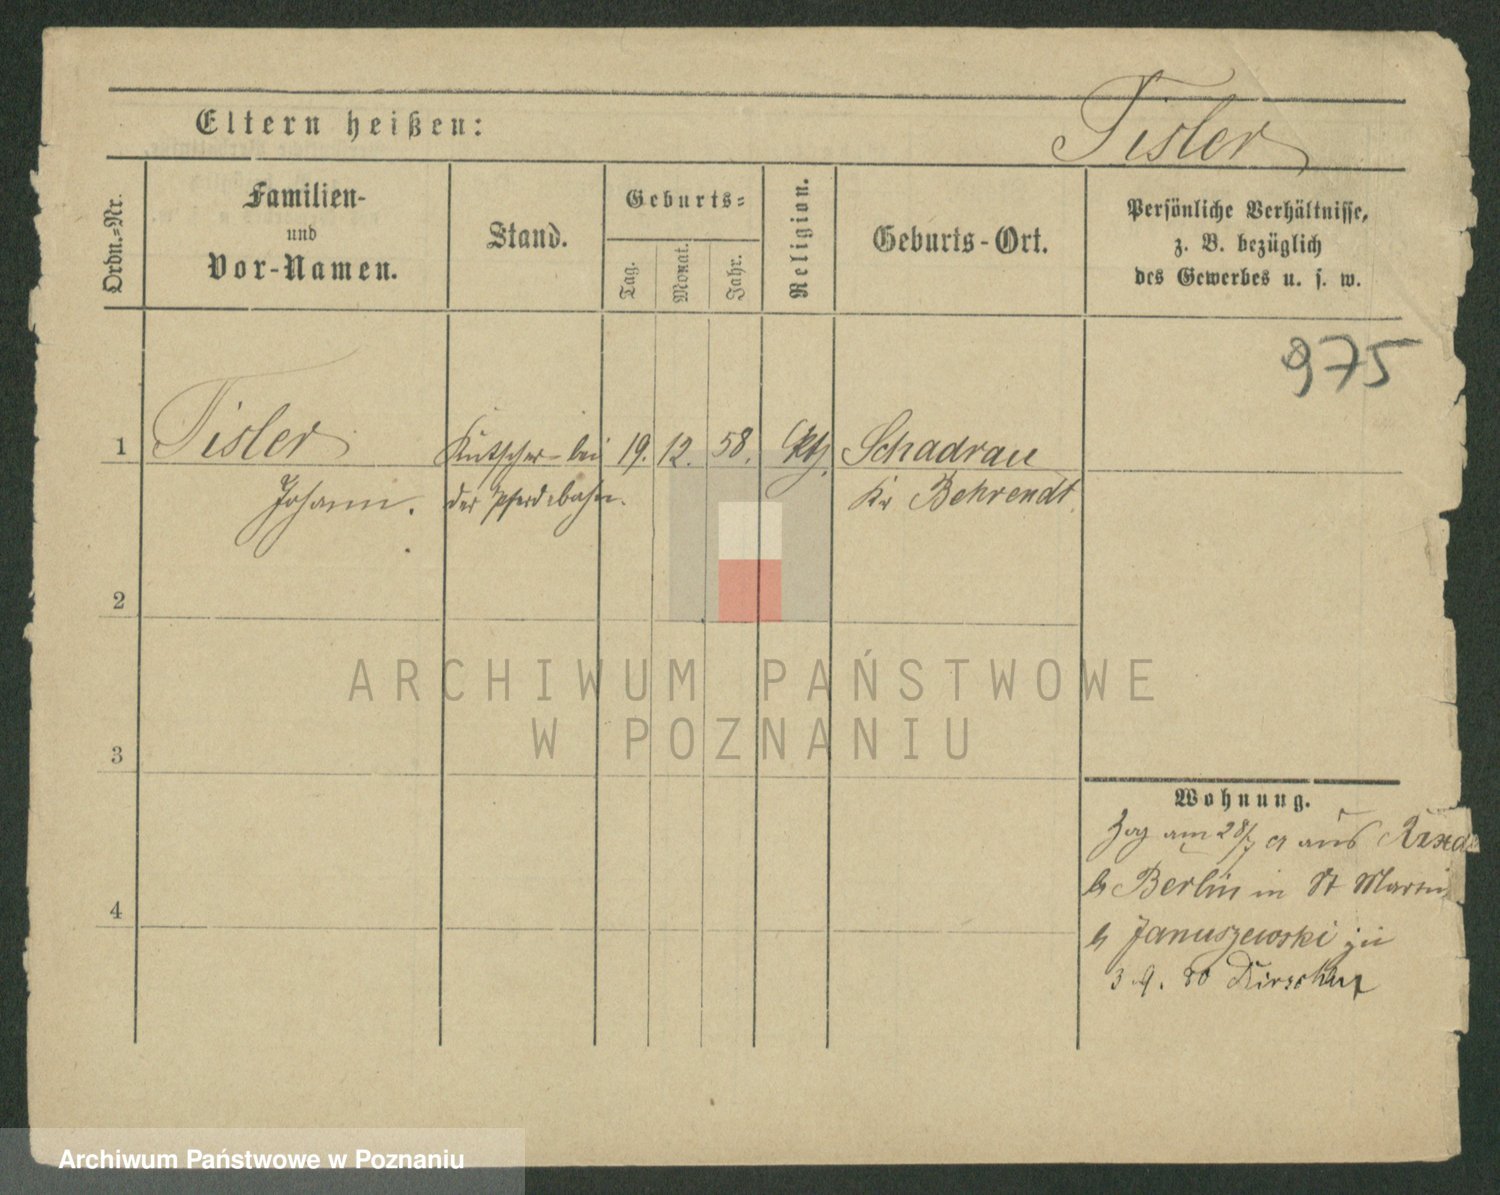 Eltern heißen:
Tisler
Ordn.=Nr.
Familien-
und
Vor-Namen.
Stand.
Geburts=
Tag.
Monat.
Jahr.
Religion.
Geburts-Ort.
Persönliche Verhältnisse,
z. B. bezüglich
des Gewerbes u. s. w.
975
1
Tisler
Kutscher bei
19. 12. 58.
Schadrau
Johann.
der Pferdebahn.
Kr Behrendt
2
3
4
Wohnung.
Zog am 28/7 aus
Berlin in St Martin
Januszewski zu
3.9.80
ARCHIWUM PAŃSTWOWE
W POZNANIU
Archiwum Państwowe w Poznaniu